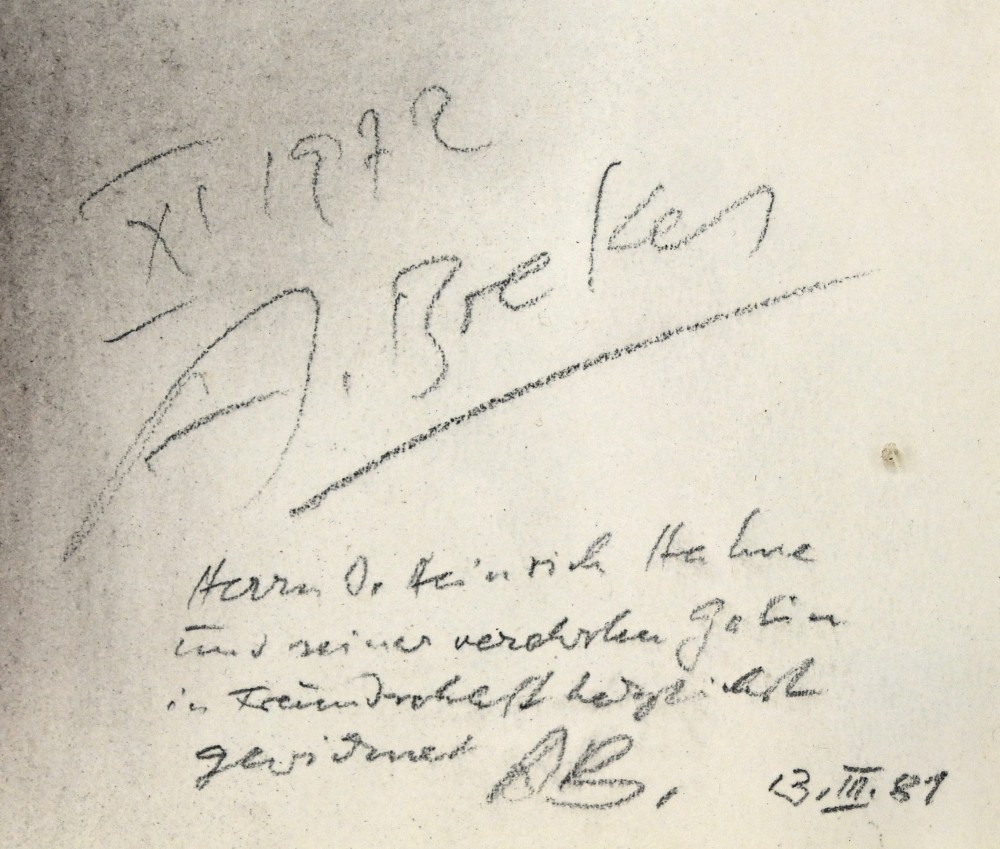 XI 1972
A. Breker
Herrn D. Heinrich Hahne
und seiner verehrten Gattin
in Freundschaft herzlichst
gewidmet AB.
13.III.81